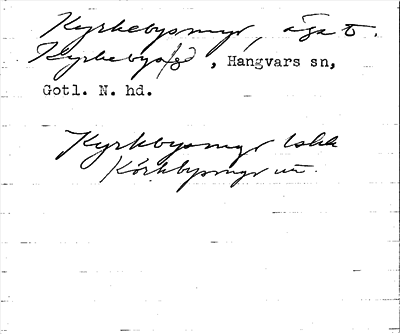 Kyrkebysmyr, ägs t.
Kyrkebys , Hangvars sn,
Gotl. N. hd.
Kyrkbysmyr
Körkbysmyr